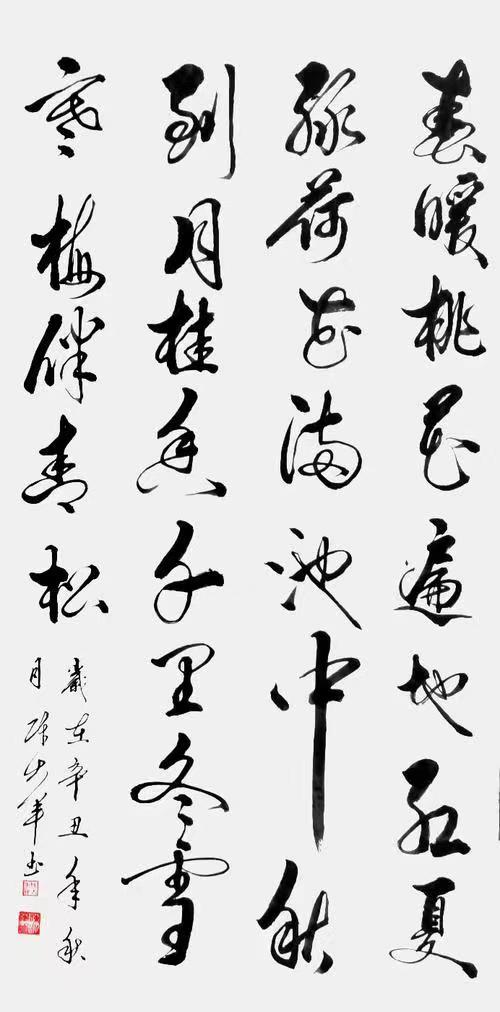 春暖桃花遍地红夏
绿荷花满池中秋
到月桂香千里冬雪
寒梅伴青松
歲在辛丑年秋
月陈少书